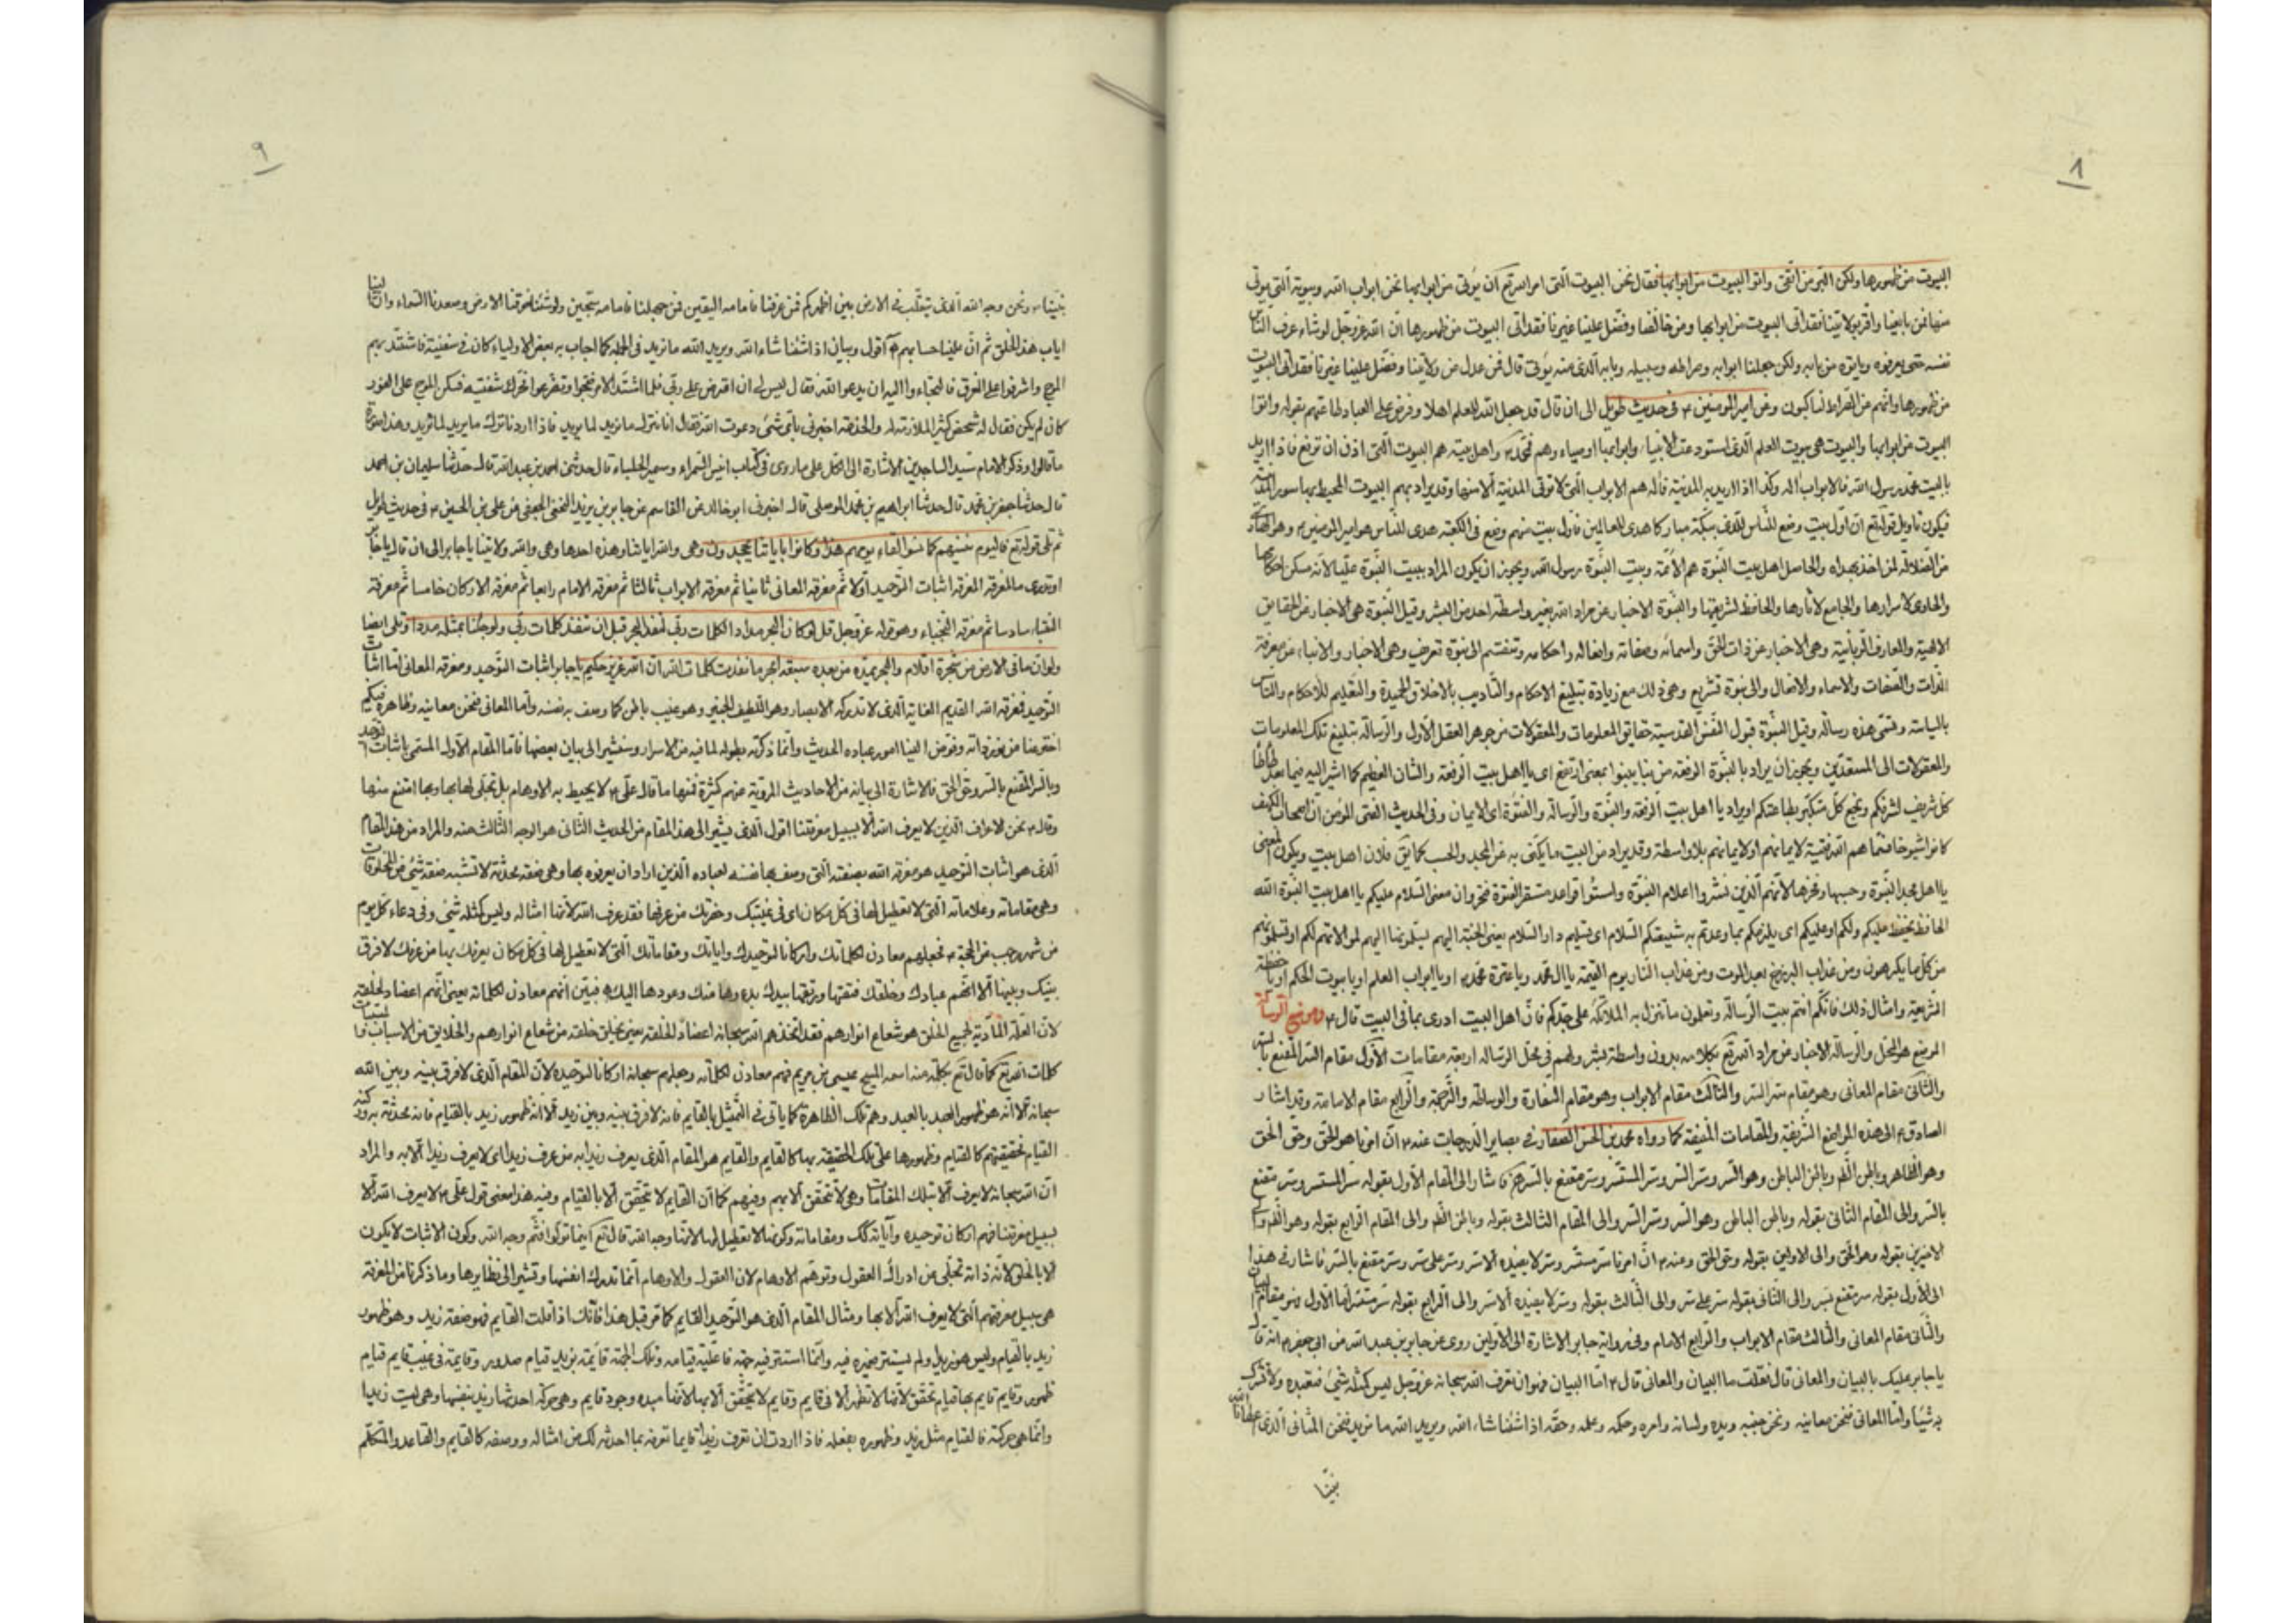 ٨
البيوت من ظهورها ولكن البر من اتقى واتوا البيوت من ابوابها فقال نحن البيوت التى امر الله تع ان يؤتى من ابوابها نحن ابواب الله وبيوته التى يؤتى
منها فمن بايعنا واقر بولايتنا فقد اتى البيوت من ابوابها ومن خالفنا وفضل علينا غيرنا فقد اتى البيوت من ظهورها ان الله عزوجل لو شاء عرف الناس
نفسه حتى يعرفوه وياتوه من بابه ولكن جعلنا ابوابه وصراطه وسبيله وبابه الذى منه يؤتى قال فمن عدل عن ولايتنا وفضل علينا غيرنا فقد اتى البيوت
من ظهورها وانهم عن الصراط لناكبون وعن امير المومنين ٤ فى حديث طويل الى ان قال قد جعل الله للعلم اهلا وفرض على العباد طاعتهم بقوله واتوا
البيوت من ابوابها والبيوت هى بيوت العلم الذى استودعت الانبياء وابوابها اوصياء وهم محمد واهل بيته هم البيوت التى اذن ان ترفع فاذا اريد
بالبيت محمد رسول الله فالابواب آله وكذا اذا اريد به المدينة فآله هم الابواب التى لا تؤتى المدينة الا منها وقد يراد بهم البيوت المحيط بها سور المدينة
فيكون تاويل قوله تع ان اول بيت وضع للناس للذى ببكة مباركا وهدى للعالمين فاول بيت منهم وضع فى الكعبة هدى للناس هو امير المومنين ٤ وهو
من الضلالة لمن اخذ بهداه والحاصل اهل بيت النبوة هم الائمة وبيت النبوة رسول الله ويجوز ان يكون المراد ببيت النبوة عليا لانه مسكن احكامها
والحاوى لاسرارها والجامع لاثارها والحافظ لشريعتها والنبوة الاخبار عن مراد الله بغير واسطة احد من البشر وقيل النبوة هى الاخبار عن الحقايق
الالهية والمعارف الربانية وهى الاخبار عن ذات الحق واسمائه وصفاته وافعاله واحكامه وتنقسم الى نبوة تعريف وهى الاخبار والانباء عن معرفة
الذات والصفات والاسماء والافعال والى نبوة تشريع وهى ذلك مع زيادة تبليغ الاحكام والتاديب بالاخلاق الحميدة والتعليم للاحكام
بالسياسة وتسمى هذه رسالة وقيل النبوة قبول النفس القدسية حقايق المعلومات والمعقولات من جوهر العقل الاول والرسالة تبليغ تلك المعلومات
والمعقولات الى المستعدين ويجوز ان يراد بالنبوة الرفعة من نبا ينبوا بمعنى ارتفع اى يا اهل بيت الرفعة والشان العظيم كما اشير اليه فيما بعد طاطا
كل شريف لشرفكم وبخع كل متكبر بطاعتكم او يراد يا اهل بيت الرفعة والنبوة والرسالة والفتوة اى الايمان وفى الحديث الفتى المؤمن ان اصحاب الكهف
كانوا شيوخا فسماهم الله فتية لايمانهم اولايمانهم بلا واسطة وقد يراد من البيت ما يكنى به عن المجد والحسب كما يق فلان اهل بيت ويكون المعنى
يا اهل مجد النبوة وحسبها وفخرها لانهم الذين نشروا اعلام النبوة واسسوا قواعد مستقر الفتوة معنى السلام عليكم يا اهل بيت النبوة الله
الحافظ يحفظ عليكم ولكم او عليكم اى يلزمكم بما وعدتم به شيعتكم السلام اى تسليم دار السلام يعنى الجنة اليهم
من كل ما يكرهون ومن عذاب البرزخ بعد الموت ومن عذاب النار يوم القيمة يا آل محمد ويا عترة محمد او يا ابواب العلم او يا بيوت الحكم او يا حفظة
الشريعة وامثال ذلك فانكم انتم بيت الرسالة وتعلمون ما تنزل به الملائكة على جدكم فان اهل البيت ادرى بما فى البيت قال ٤ وموضع الرسالة
الموضع هو المحل والرسالة الاخبار عن مراد الله تع بكلامه بدون واسطة بشر ولهم فى محل الرسالة اربعة مقامات الاول مقام السر المقنع بالسر
والثانى مقام المعانى وهو مقام سر السر والثالث مقام الابواب وهو مقام السفارة والوساطة والترجمة والرابع مقام الامامة وقد اشار
الصادق ٤ الى هذه المواضع الشريفة والمقامات المنيفة كما رواه محمد بن الحسن الصفار فى بصاير الدرجات عنه ٤ ان امرنا هو الحق وحق الحق
وهو الظاهر وباطن الظاهر وباطن الباطن وهو السر وسر السر وسر المستسر وسر مقنع بالسر فاشار الى المقام الاول بقوله سر المستسر وسر مقنع
بالسر والى المقام الثانى بقوله وباطن الباطن وهو السر وسر السر والى المقام الثالث بقوله وباطن الظاهر والى المقام الرابع بقوله وهو الظاهر
الاخيرين بقوله وهو الحق والى الاولين بقوله وحق الحق وعنه ٤ ان امرنا سر مستسر وسر لا يفيده الا سر وسر على سر وسر مقنع بالسر فاشار فى هذا
الى الاول بقوله سر مقنع بسر والى الثانى بقوله سر على سر والى الثالث بقوله وسر لا يفيده الا سر والى الرابع بقوله سر مستسر اما الاول فهو مقام البيان
والثانى مقام المعانى والثالث مقام الابواب والرابع الامام وفى رواية جابر الاشارة الى الاولين روى عن جابر بن عبد الله عن ابى جعفر ٤ انه قال
يا جابر عليك بالبيان والمعانى قال فقلت ما البيان والمعانى قال ٤ اما البيان فهو ان تعرف الله سبحانه عزوجل ليس كمثله شئ فتعبده ولا تشرك
به شيئا واما المعانى فنحن معانيه ونحن جنبه ويده ولسانه وامره وحكمه وعلمه وحقه اذا شئنا شاء الله ويريد الله ما نريد فنحن المثانى الذى اعطانا الله
نبينا
٩
نبينا ونحن وجه الله الذى يتقلب فى الارض بين اظهركم فمن عرفنا فامامه اليقين ومن جهلنا فامامه سجين ولو شئنا خرقنا الارض وصعدنا السماء وان الينا
اياب هذا الخلق ثم ان علينا حسابهم اقول وبيان اذا شئنا شاء الله ويريد الله ما نريد فى الجملة كما اجاب به بعض الاولياء كان فى سفينة فاشتد بهم
الموج واشرفوا على الغرق فالتجاءوا اليه ان يدعو الله فقال ليس لى ان اقترض على ربى فلما اشتد الامر وتضرعوا تحرك شفتيه فسكن الموج على الفور
كان لم يكن فقال له شخص كثير الملازمة له والخدمة اخبرنى باى شئ دعوت الله فقال انا نترك ما نريد لما يريد فاذا اردنا ترك ما يريد لما نريد وهذا
ما قالوا وذكر الامام سيد الساجدين الاشارة الى الكل على ما روى فى كتاب انيس السمراء وسمير الجلساء قال حدثنى احمد بن عبد الله قال حدثنا سليمان بن احمد
قال حدثنا جعفر بن محمد قال حدثنا ابراهيم بن محمد الموصلى قال اخبرنى ابو خالد عن القاسم عن جابر بن يزيد الجعفى عن على بن الحسين ٤ فى حديث طويل
ثم تلى قوله تع فاليوم ننسيهم كما نسوا لقاء يومهم هذا وكانوا باياتنا يجحدون وهى والله اياتنا وهذه احدها وهى والله ولايتنا يا جابر الى ان قال يا جابر
اوتدرى ما المعرفة المعرفة اثبات التوحيد اولا ثم معرفة المعانى ثانيا ثم معرفة الابواب ثالثا ثم معرفة الامام رابعا ثم معرفة الاركان خامسا ثم معرفة
النقباء سادسا ثم معرفة النجباء وهو قوله عزوجل قل لو كان البحر مدادا لكلمات ربى لنفد البحر قبل ان تنفد كلمات ربى ولو جئنا بمثله مددا وتلى ايضا
ولو ان ما فى الارض من شجرة اقلام والبحر يمده من بعده سبعة ابحر ما نفدت كلمات الله ان الله عزيز حكيم يا جابر اثبات التوحيد ومعرفة المعانى اما اثبات
التوحيد فمعرفة الله القديم الغاية الذى لا تدركه الابصار وهو اللطيف الخبير وهو غيب باطن كما وصف به نفسه واما المعانى فنحن معانيه وظاهره فيكم
اخترعنا من نور ذاته وفوض الينا امور عباده الحديث وانما ذكرته بطوله لما فيه من الاسرار وسنشير الى بيان بعضها فاما المقام الاول المسمى باثبات التوحيد
وبالسر المقنع بالسر وحق الحق فالاشارة الى بيانه من الاحاديث المروية عنهم كثيرة فمنها ما قال على ٤ لا يحيط به الاوهام بل تجلى لها بها وبها امتنع منها
وقال ٤ نحن الاعراف الذين لا يعرف الله الا بسبيل معرفتنا اقول الذى يشير الى هذا المقام من الحديث الثانى هو الوجه الثالث منه والمراد من هذا المقام
الذى هو اثبات التوحيد هو معرفة الله بصفته التى وصف بها نفسه لعباده الذين اراد ان يعرفوه بها وهى صفة محدثة لا تشبه صفة شئ من المخلوقات
وهى مقاماته وعلاماته التى لا تعطيل لها فى كل مكان اى فى غيبتك وحضرتك من عرفها فقد عرف الله لانها امثاله وليس كمثله شئ وفى دعاء كل يوم
من شهر رجب عن الحجة ٤ فجعلتهم معادن لكلماتك واركانا لتوحيدك واياتك ومقاماتك التى لا تعطيل لها فى كل مكان يعرفك بها من عرفك لا فرق
بينك وبينها الا انهم عبادك وخلقك فتقها ورتقها بيدك بدءها منك وعودها اليك فبين انهم معادن لكلماته يعنى انهم اعضاد لخلقه
لان العلة المادية لجميع الخلق هو شعاع انوارهم فقد اتخذهم الله سبحانه اعضادا لخلقه يعنى يخلق خلقه من شعاع انوارهم والخلايق من الاسباب
كلمات الله تع كما قال تع بكلمة منه اسمه المسيح عيسى بن مريم فهم معادن لكلماته وجعلهم سبحانه اركانا لتوحيده لان المقام الذى لا فرق بينه وبين الله
سبحانه الا انه هو ظهور العبد بالعبد وهم تلك الظاهرة كما ياتى فى التمثيل بالقايم فانه لا فرق بينه وبين زيد الا انه ظهور زيد بالقيام فانه محدثة به
القيام فحقيقتهم كالقيام وظهورها على تلك الحقيقة بها كالقايم والقايم هو المقام الذى يعرف زيد به من عرف زيدا اى لا يعرف زيدا الا به والمراد
ان الله سبحانه لا يعرف الا بتلك المقامات وهى لا تتحقق الا بهم وفيهم كما ان القايم لا يتحقق الا بالقيام وفيه هذا معنى قول على ٤ لا يعرف الله الا
بسبيل معرفتنا فهم اركان توحيده وآياته كك ومقاماته وكونها لا تعطيل لها لانها وجه الله قال تع اينما تولوا فثم وجه الله وكون الاثبات لا يكون
الا بالخلق لانه ذاته تجلى عن ادراك العقول وتوهم الاوهام لان العقول والاوهام انما تدرك انفسها وتشير الى نظايرها وما ذكرنا من المعرفة
هى سبيل معرفتهم التى لا يعرف الله الا بها ومثال المقام الذى هو التوحيد القايم كما مر قبل هذا فانك اذا قلت القايم فهو صفة زيد وهو ظهور
زيد بالقيام وليس هو زيد ولم يستتر ضميره فيه وانما استتر فيه جهة فاعلية قيامه وتلك الجهة قايمة بزيد قيام صدور وقايمة فى غيب قايم قيام
ظهور وقايم قايم بها قيام تحقق لانها لا تظهر الا فى قايم وقايم لا يتحقق الا بها لانها مبدء وجود قايم وهى حركة احدثها زيد بنفسها وهى ليست زيدا
وانما هى حركته فالقيام مثل زيد وظهوره بفعله فاذا اردت ان تعرف زيدا قايما تعرفه بما احدثه لك من امثاله ووصفه كالقايم والقاعد والمتكلم